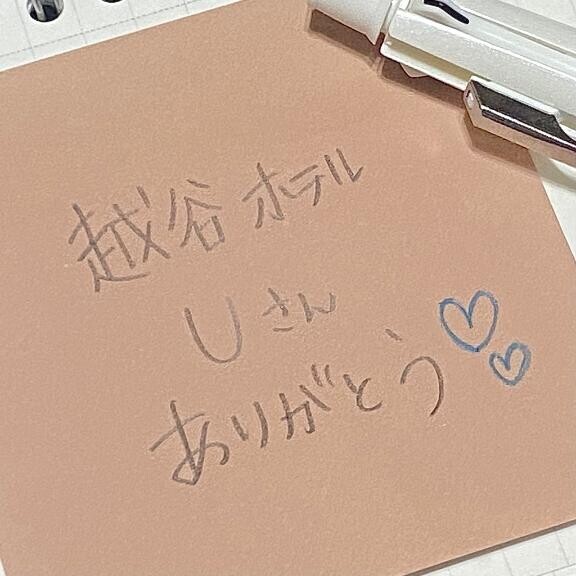 越谷 ホテル
Uさん
ありがとう♡♡